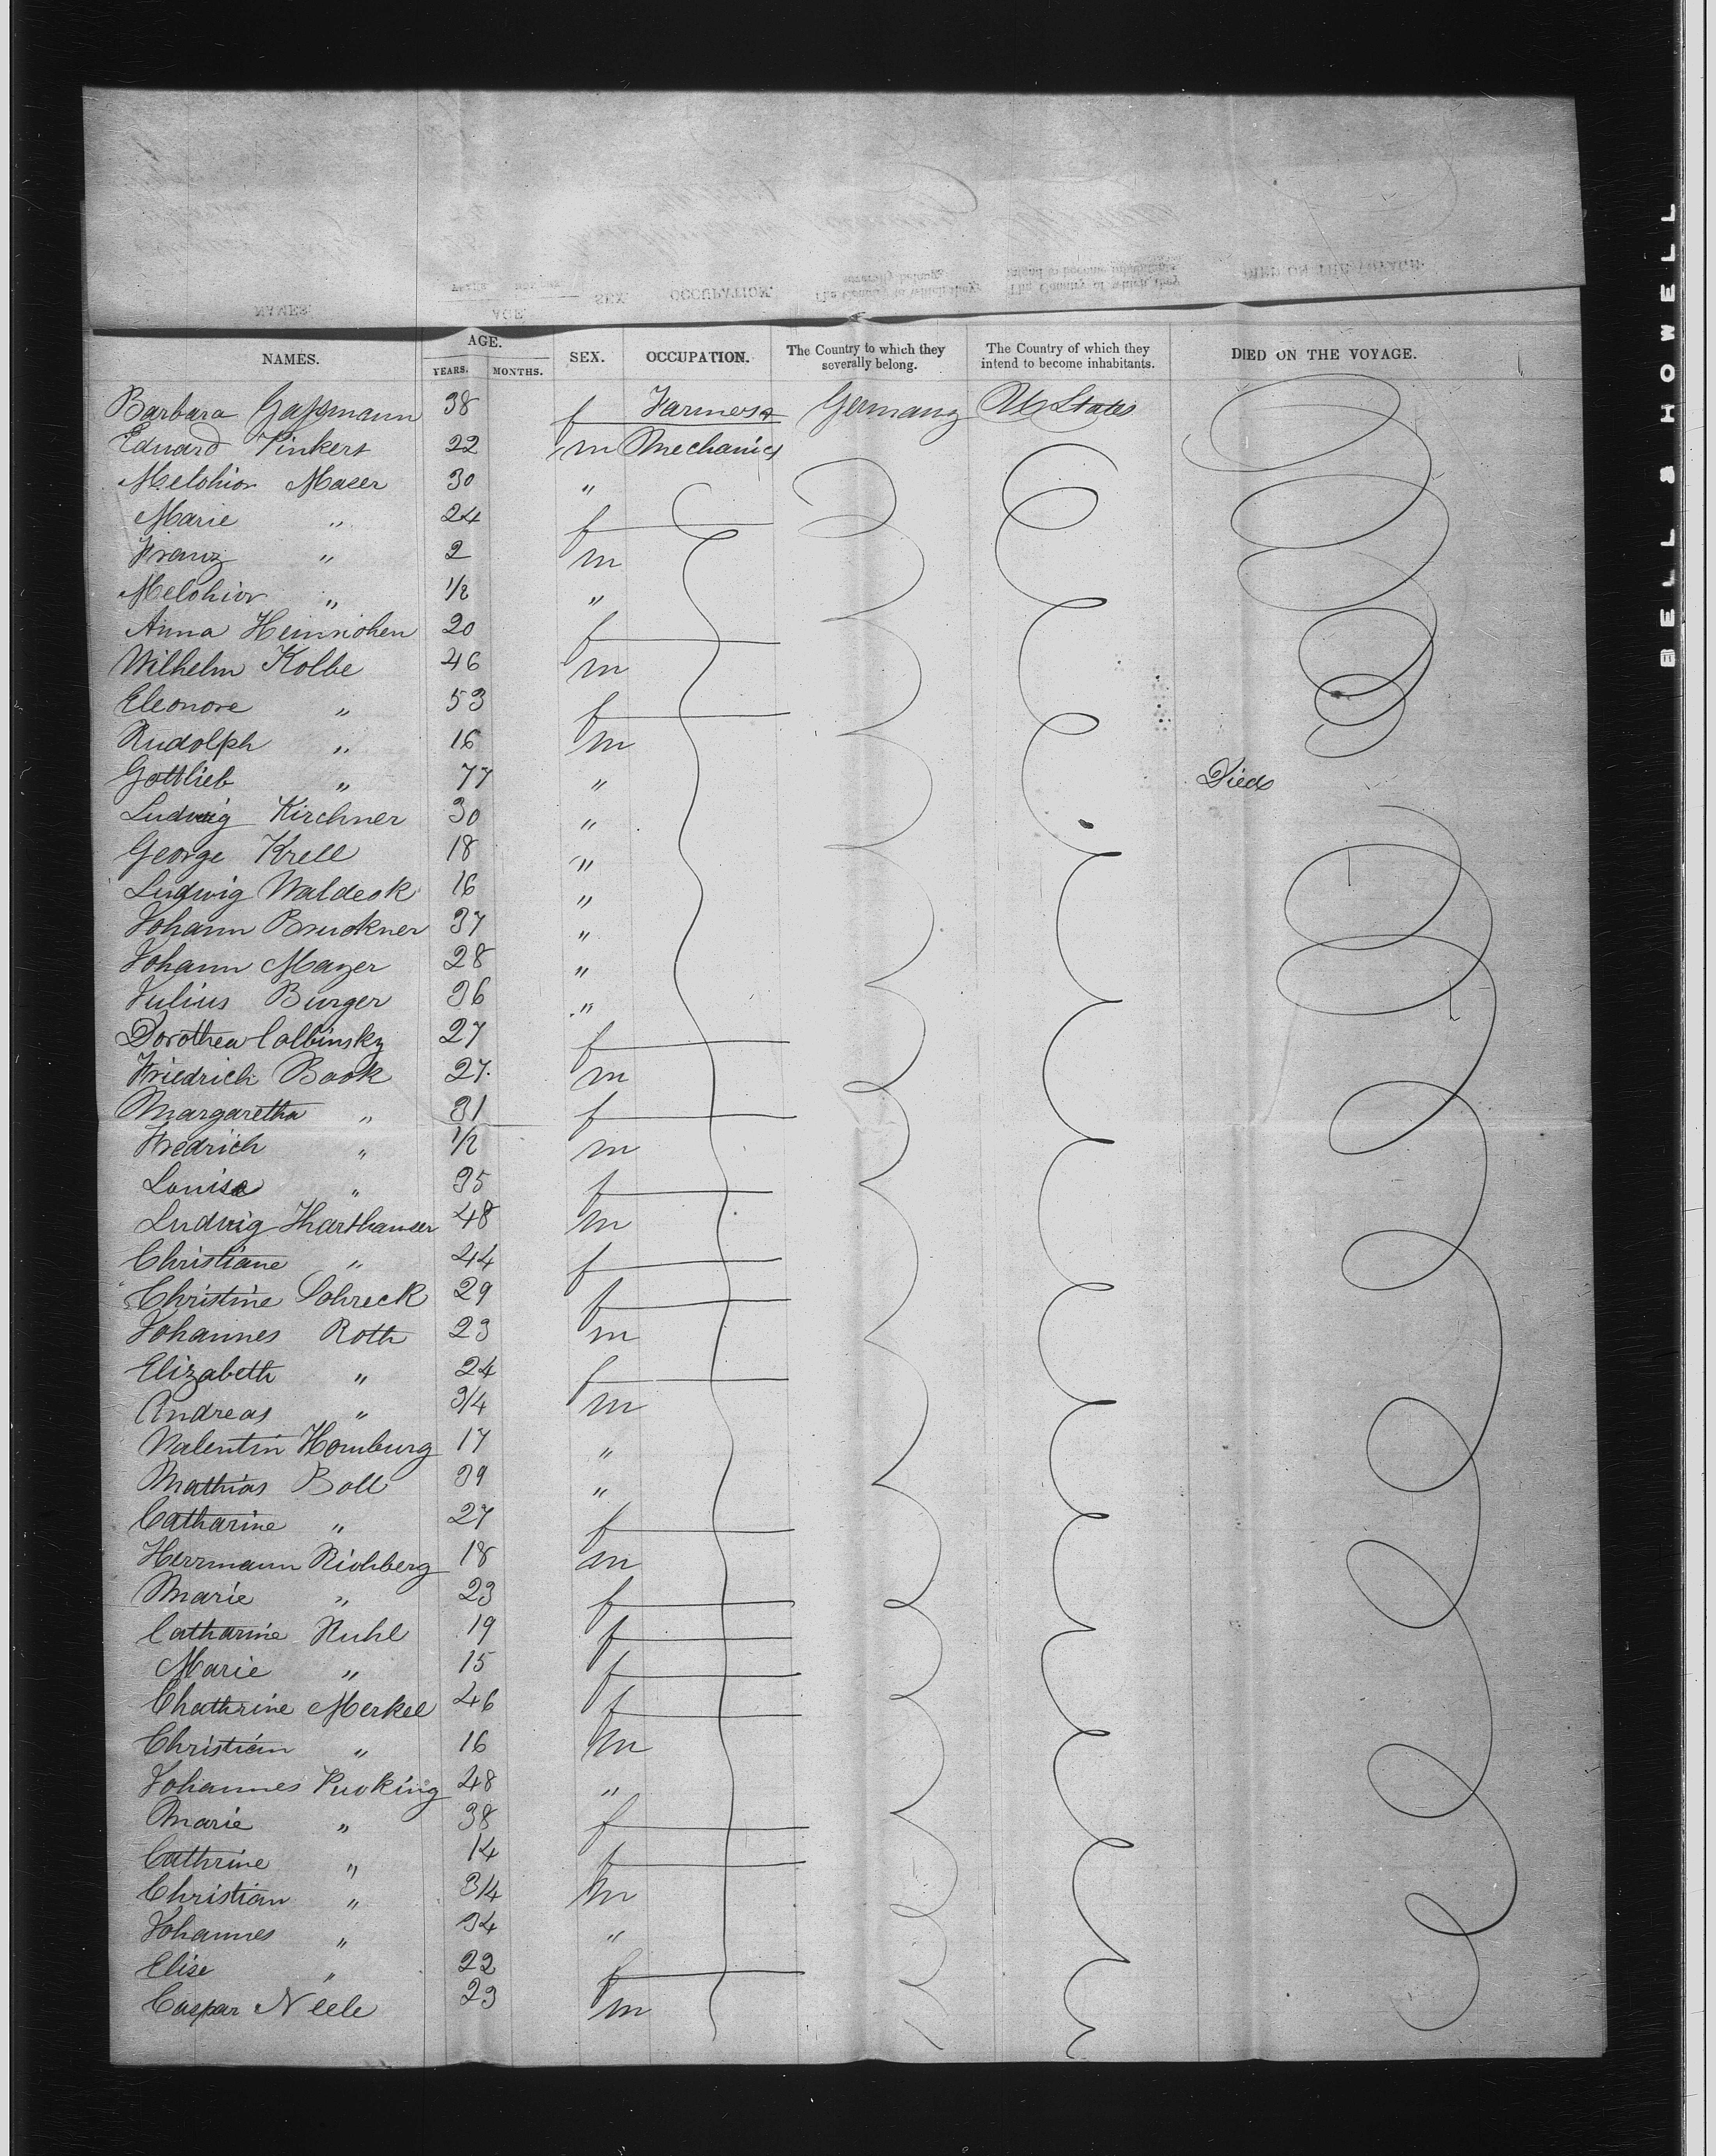 NAMES. AGE. YEARS. MONTHS. SEX. OCCUPATION. The Country to which they severally belong. The Country of which they intend to become inhabitants. DIED ON THE VOYAGE.
Barbara Gassmann 38 f Farmers Germany U States
Eduard Pinkert 22 m Mechanics
Melchior Maeer 30 "
Marie " 24 f
Franz " 2 m
Melchior " 1/2 "
Anna Heinrichen 20 f
Wilhelm Kolbe 46 m
Eleonore " 53 f
Rudolph " 16 m
Gottlieb " 77 " Died
Ludwig Kirchner 30 "
George Krell 18 "
Ludwig Waldeck 16 "
Johann Bruckner 37 "
Johann Mayer 28 "
Julius Burger 36 "
Dorothea Colbinsky 27 f
Friedrich Book 27 m
Margaretha " 31 f
Fredrich " 1/2 m
Louise " 35 f
Ludwig 48 m
Christiane " 44 f
Christine Schreck 29 f
Johannes Roth 23 m
Elizabeth " 24 f
Andreas " 3/4 m
Valentin Homburg 17 "
Mathias Boll 39 "
Catharine " 27 f
Herrmann Richberg 18 m
Marie " 23 f
Catharine Ruhl 19 f
Marie " 15 f
Chathrine Merkel 46 f
Christian " 16 m
Johannes 48 "
Marie " 38 f
Cathrine " 14 f
Christian " 3/4 m
Johannes " 34 "
Elise " 22 f
Caspar Neele 23 m
BELL & HOWELL